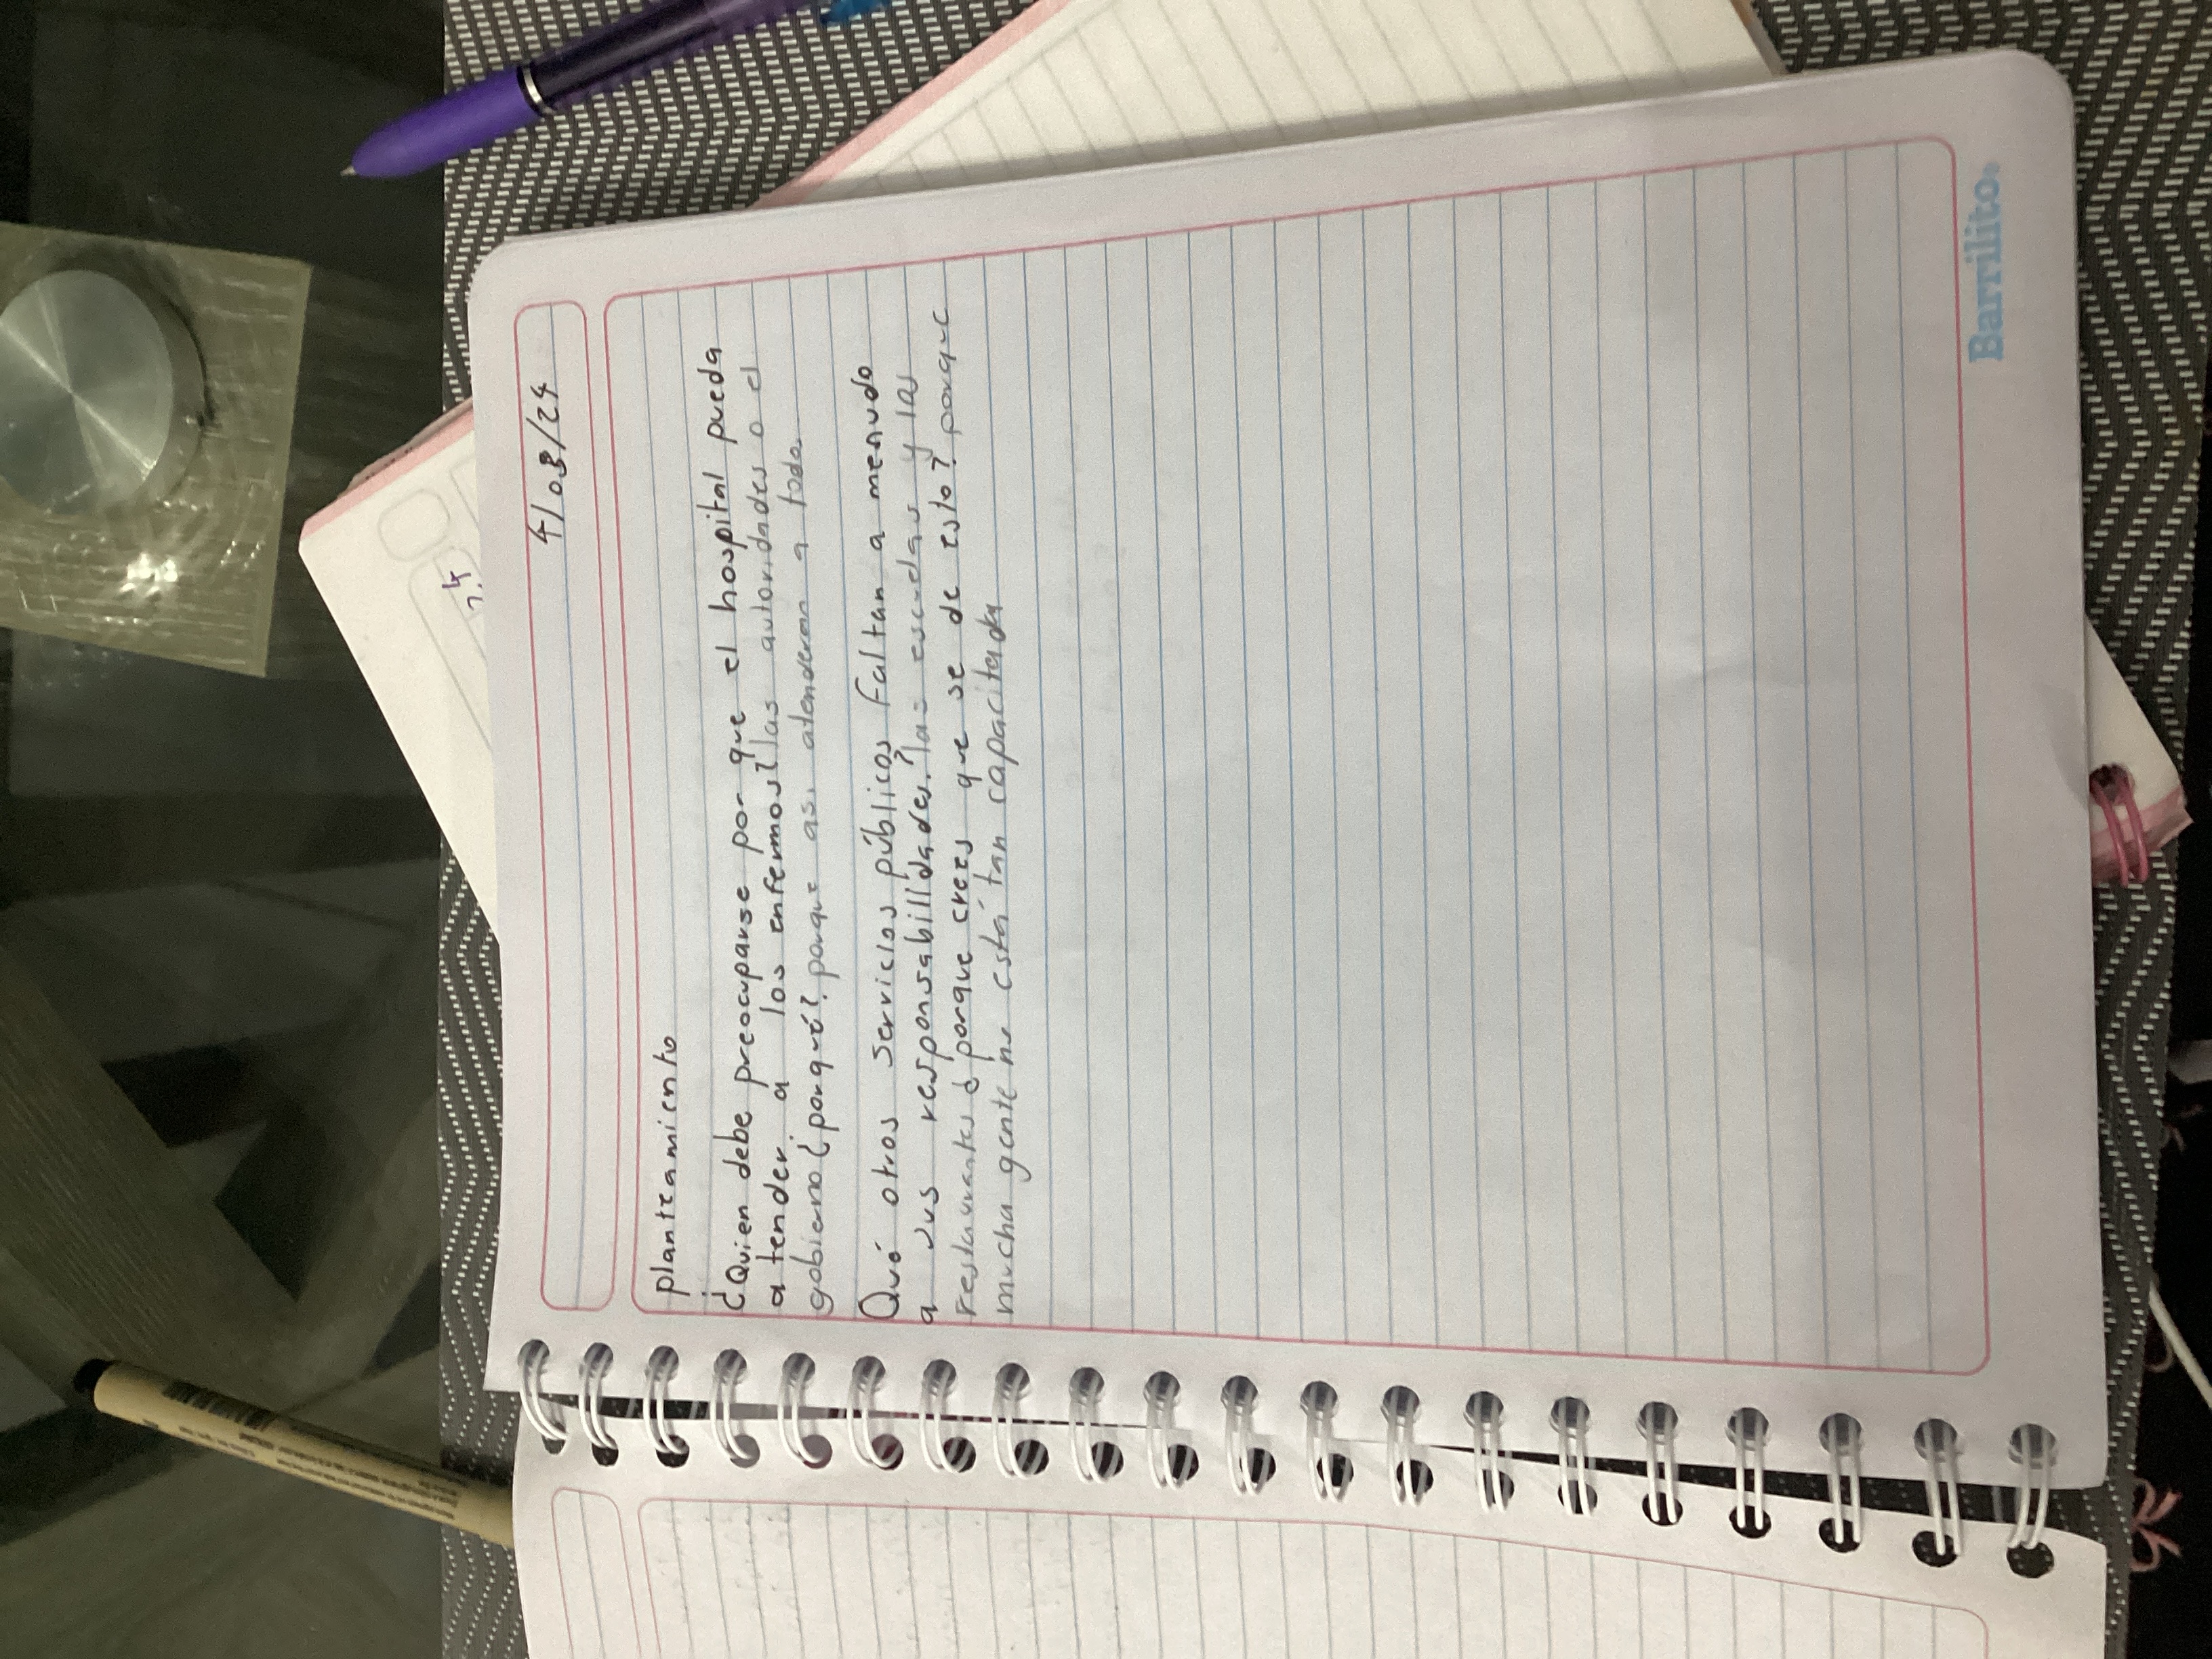 4/03/24
planteamiento
¿Quien debe preocuparse por que el hospital pueda
a tender a los enfermos? las autoridades o el
gobierno ¿porqué? porque asi atenderan a todo
Qué otros servicios públicos faltan a menudo
a sus responsabilidades? las escuelas y las
restaurantes ¿porque crees que se de esto? porque
mucha gente no está tan capacitada
Barrilito.